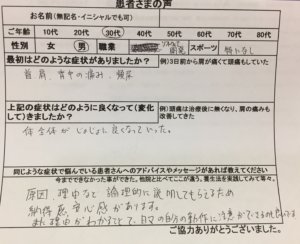 患者さまの声
お名前(無記名・イニシャルでも可)
ご年齢 10代 20代 30代 40代 50代 60代 70代 80代
性別 女 男 職業 開発 スポーツ 特になし
最初はどのような症状がありましたか? 例)3日前から肩が痛くて頭痛もしていた
首、肩、背中の痛み、頻尿
上記の症状はどのように良くなって(変化して)きましたか? 例)頭痛は治療後に無くなり、肩の痛みも改善してきた
体全体がじょじょに良くなっていった。
同じような症状で悩んでいる患者さんへのアドバイスやメッセージがあれば教えてください
今までできなかった事ができた。他院と比べてここが違う。養生法を実践してみて等々。
原因、理由など論理的に説明してもらえるため
納得感、安心感があります。
また理由がわかることで、日々の自分の動作に注意ができるのも良いです
ご協力ありがとうございました。